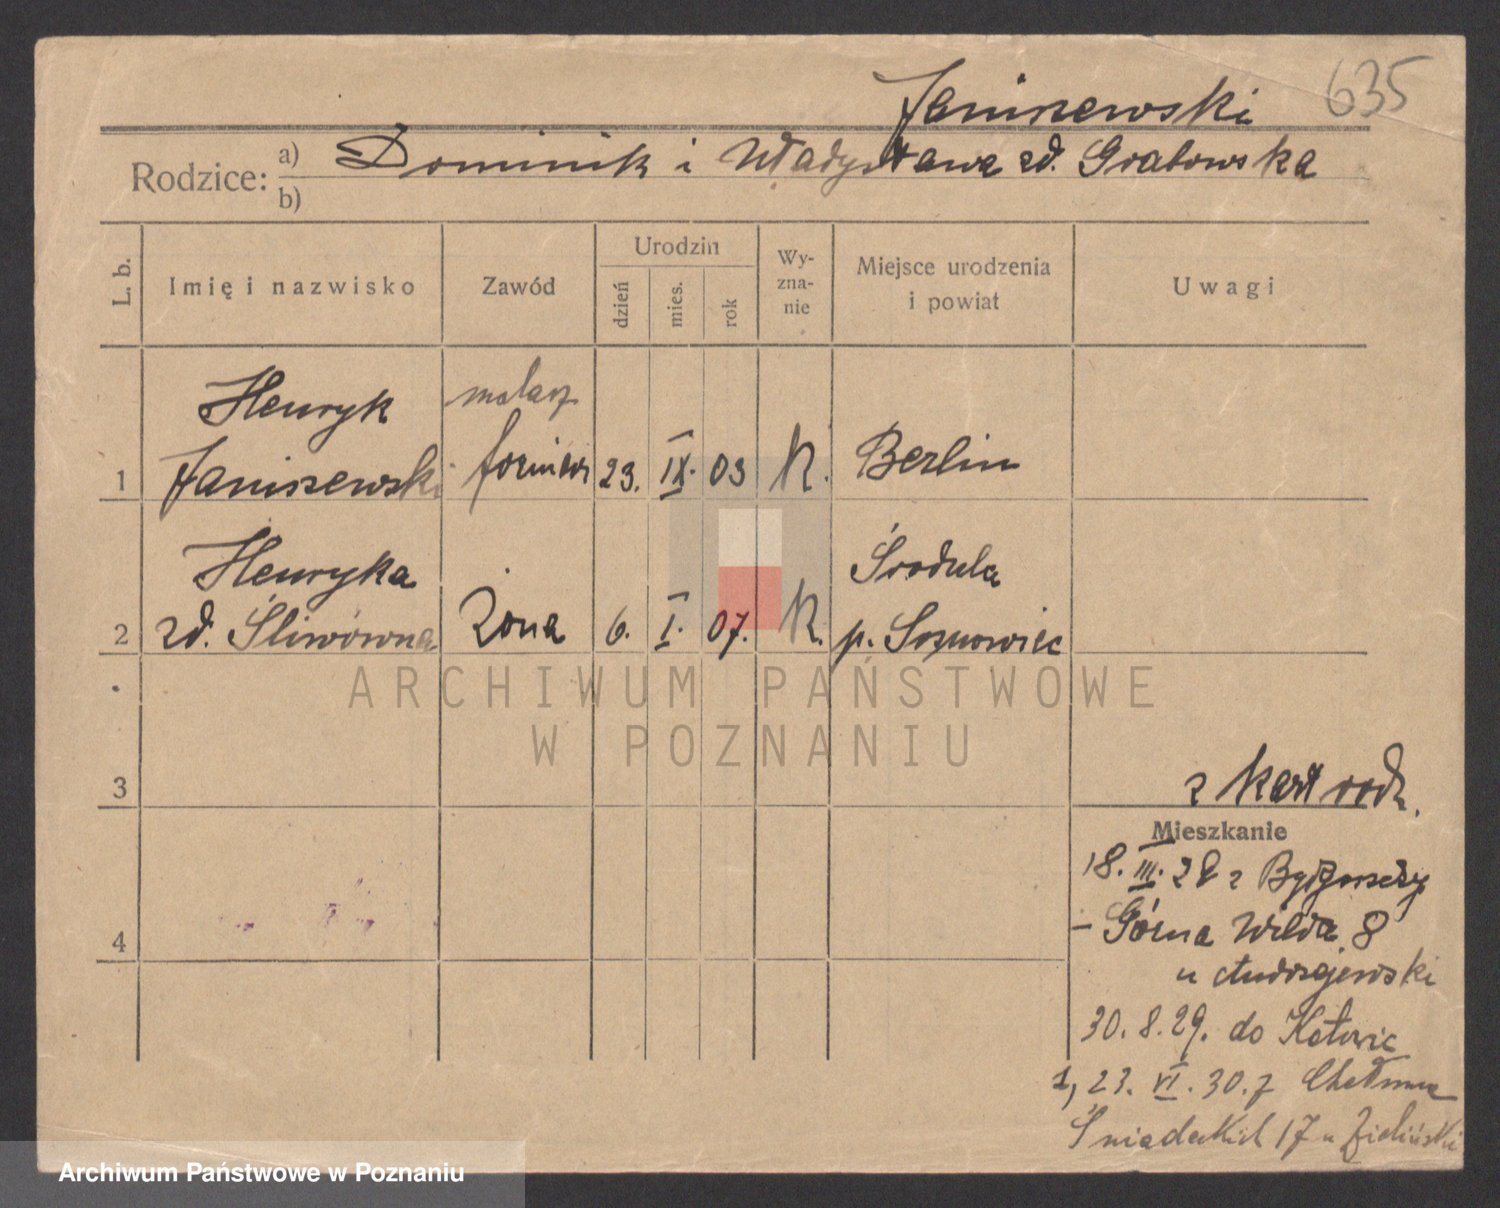 Janiszewski 635
Rodzice: a) Dominik i Władysława zd. Grabowska
b)
L. b. Imię i nazwisko Zawód Urodzin dzień mies. rok Wy-zna-nie Miejsce urodzenia i powiat Uwagi
Henryk malarz
1 Janiszewski 23. IX. 03 K. Berlin
Henryka Środula
2 zd. Śliwówna żona 6. I. 07. K. p. Sosnowiec
ARCHIWUM PAŃSTWOWE
W POZNANIU
3 z kart rodz.
Mieszkanie
18. III. 28 z Bydgoszczy
4 – Górna Wilda 8
u Andrzejewski
30. 8. 29. do Katowic
1, 23. VI. 30. z Chełmna
Śniadeckich 17 u Zieliński
Archiwum Państwowe w Poznaniu